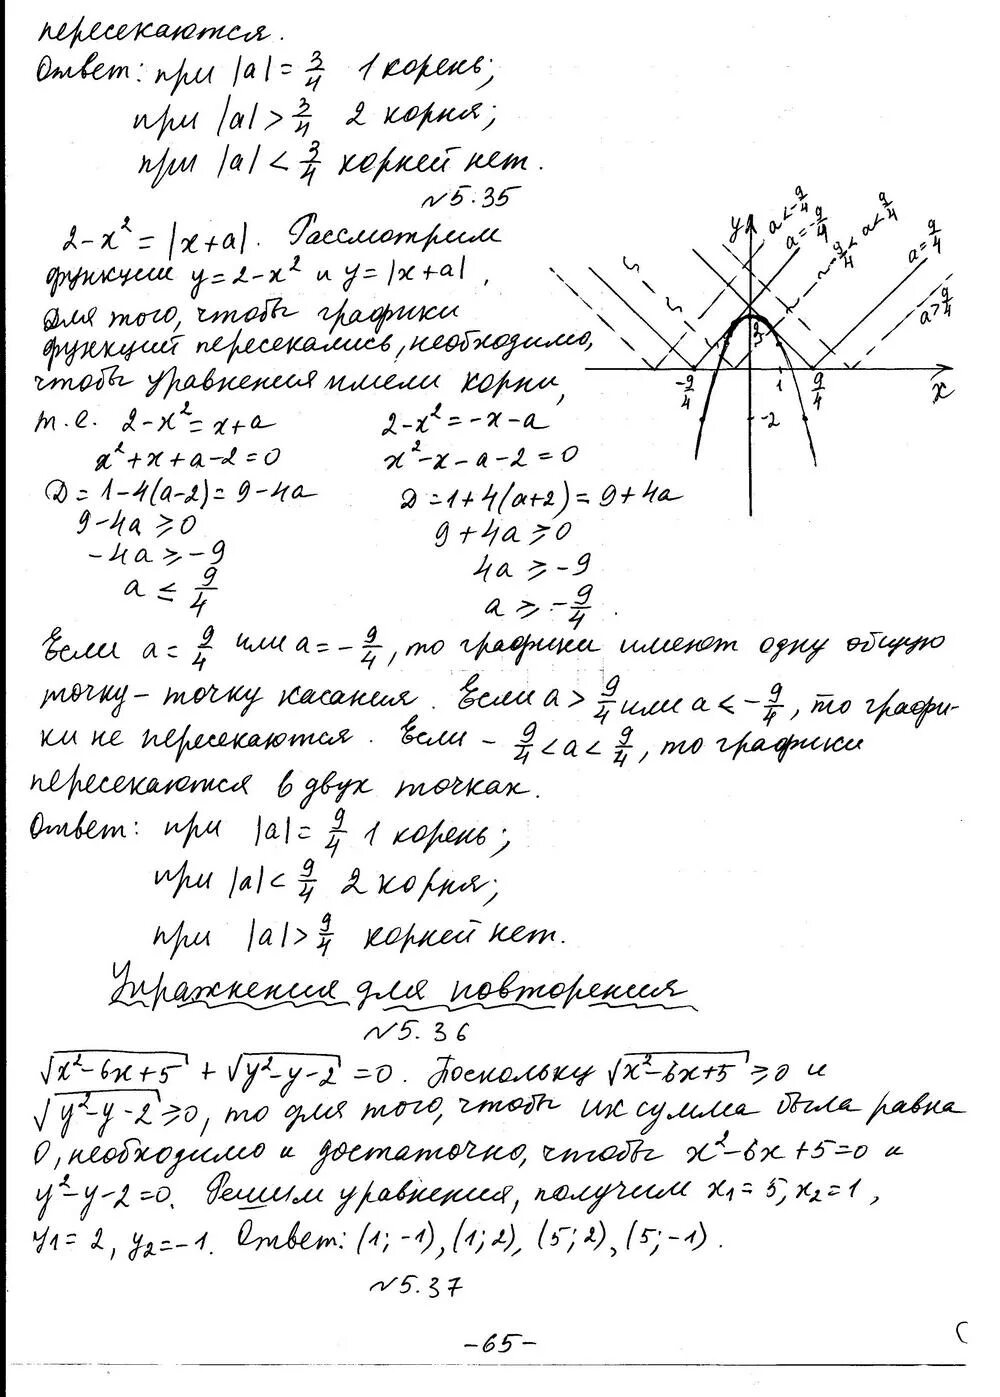 пересекаются.
Ответ: при |a| = 3/4 1 корень;
при |a| > 3/4 2 корня;
при |a| < 3/4 корней нет.
№5.35
2-x² = |x+a|. Рассмотрим
функции y=2-x² и y=|x+a|,
Для того, чтобы графики
функций пересекались, необходимо,
чтобы уравнения имели корни,
т.е. 2-x²=x+a 2-x²=-x-a
x²+x+a-2=0 x²-x-a-2=0
D=1-4(a-2)=9-4a D=1+4(a+2)=9+4a
9-4a≥0 9+4a≥0
-4a≥-9 4a≥-9
a≤9/4 a≥-9/4.
y
a<-9/4
a=-9/4
-9/4<a<9/4
a=9/4
a>9/4
-9/4
1
9/4
x
-2
Если a=9/4 или a=-9/4, то графики имеют одну общую
точку-точку касания. Если a>9/4 или a<-9/4, то графи-
ки не пересекаются. Если -9/4<a<9/4, то графики
пересекаются в двух точках.
Ответ: при |a|=9/4 1 корень;
при |a|<9/4 2 корня;
при |a|>9/4 корней нет.
Упражнения для повторения
№5.36
√(x²-6x+5) + √(y²-y-2) =0. Поскольку √(x²-6x+5) ≥0 и
√(y²-y-2) ≥0, то для того, чтобы их сумма была равна
0, необходимо и достаточно, чтобы x²-6x+5=0 и
y²-y-2=0. Решим уравнения, получим x₁=5, x₂=1,
y₁=2, y₂=-1. Ответ: (1;-1), (1;2), (5;2), (5;-1).
№5.37
-65-